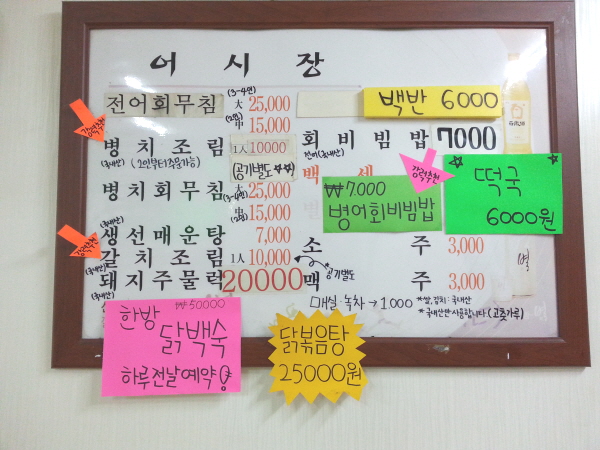 어 시 장
전어회무침 (3~4인) 大 25,000
(2인) 中 15,000
백반 6000
강력추천
병치조림 1人 10000
(국내산) (2인부터 주문가능)
(공기별도)
회비빔밥 7000
(국내산)
백 세
강력추천
떡국
6000원
병치회무침 (3~4인) 大 25,000
(국내산) (2인) 中 15,000
₩7,000
병어회비빔밥
생선매운탕 7,000
강력추천
갈치조림 1人 10,000
(국내산) 공기별도
돼지주물럭 20000
(국내산)
소 주 3,000
맥 주 3,000
매실·녹차 → 1.000
*쌀,김치:국내산
*국내산만 사용합니다 (고춧가루)
한방 ₩50000
닭백숙
하루전날예약!
닭볶음탕
25000원